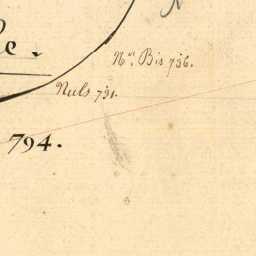 le.
N.os Bis 736.
Nuls 791.
794.